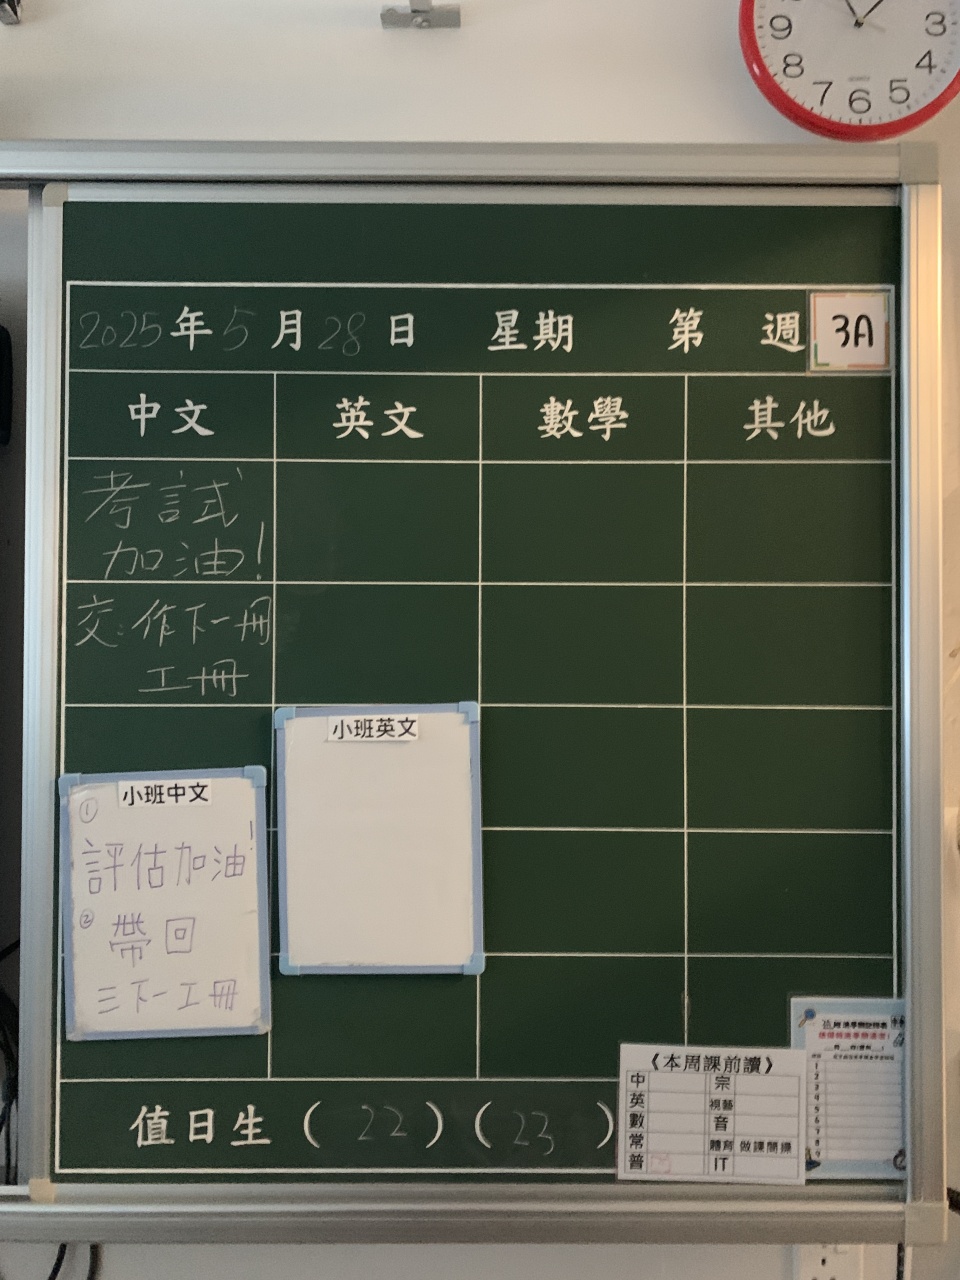 9
3
8
4
7
6
5
2025年5月28日 星期 第 週 3A
中文 英文 數學 其他
考試
加油!
交:作下一冊
工冊
小班英文
小班中文
①
評估加油!
②
帶回
三下一工冊
值日生( 22 )( 23 )
《本周課前讀》
中 宗
英 視藝
數 音
常 體育 做課間操
普 IT
1
2
3
4
5
6
7
8
9